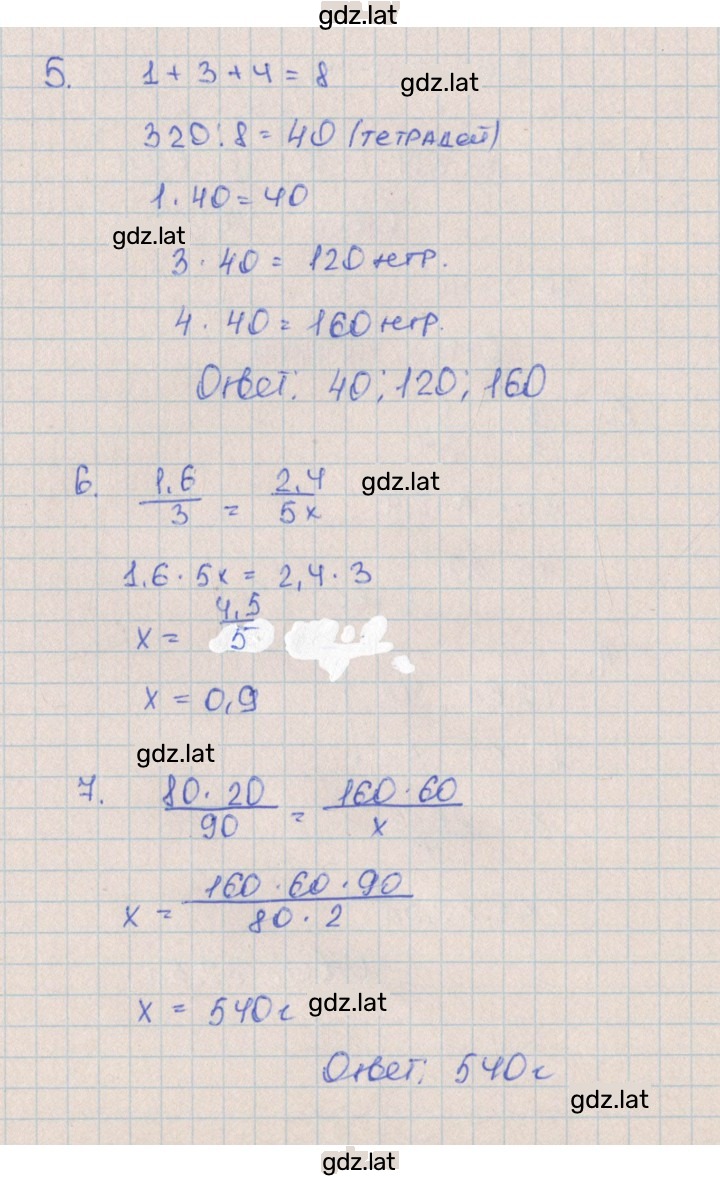 gdz.lat
5. 1 + 3 + 4 = 8
gdz.lat
320 : 8 = 40 (тетрадей)
1 · 40 = 40
gdz.lat
3 · 40 = 120 тетр.
4 · 40 = 160 тетр.
Ответ: 40; 120; 160
6. 1,6/3 = 2,4/5x
gdz.lat
1,6 · 5x = 2,4 · 3
x = 4,5/5
x = 0,9
gdz.lat
7. 80 · 20/90 = 160 · 60/x
x = 160 · 60 · 90/80 · 2
x = 540 г
gdz.lat
Ответ: 540 г
gdz.lat
gdz.lat